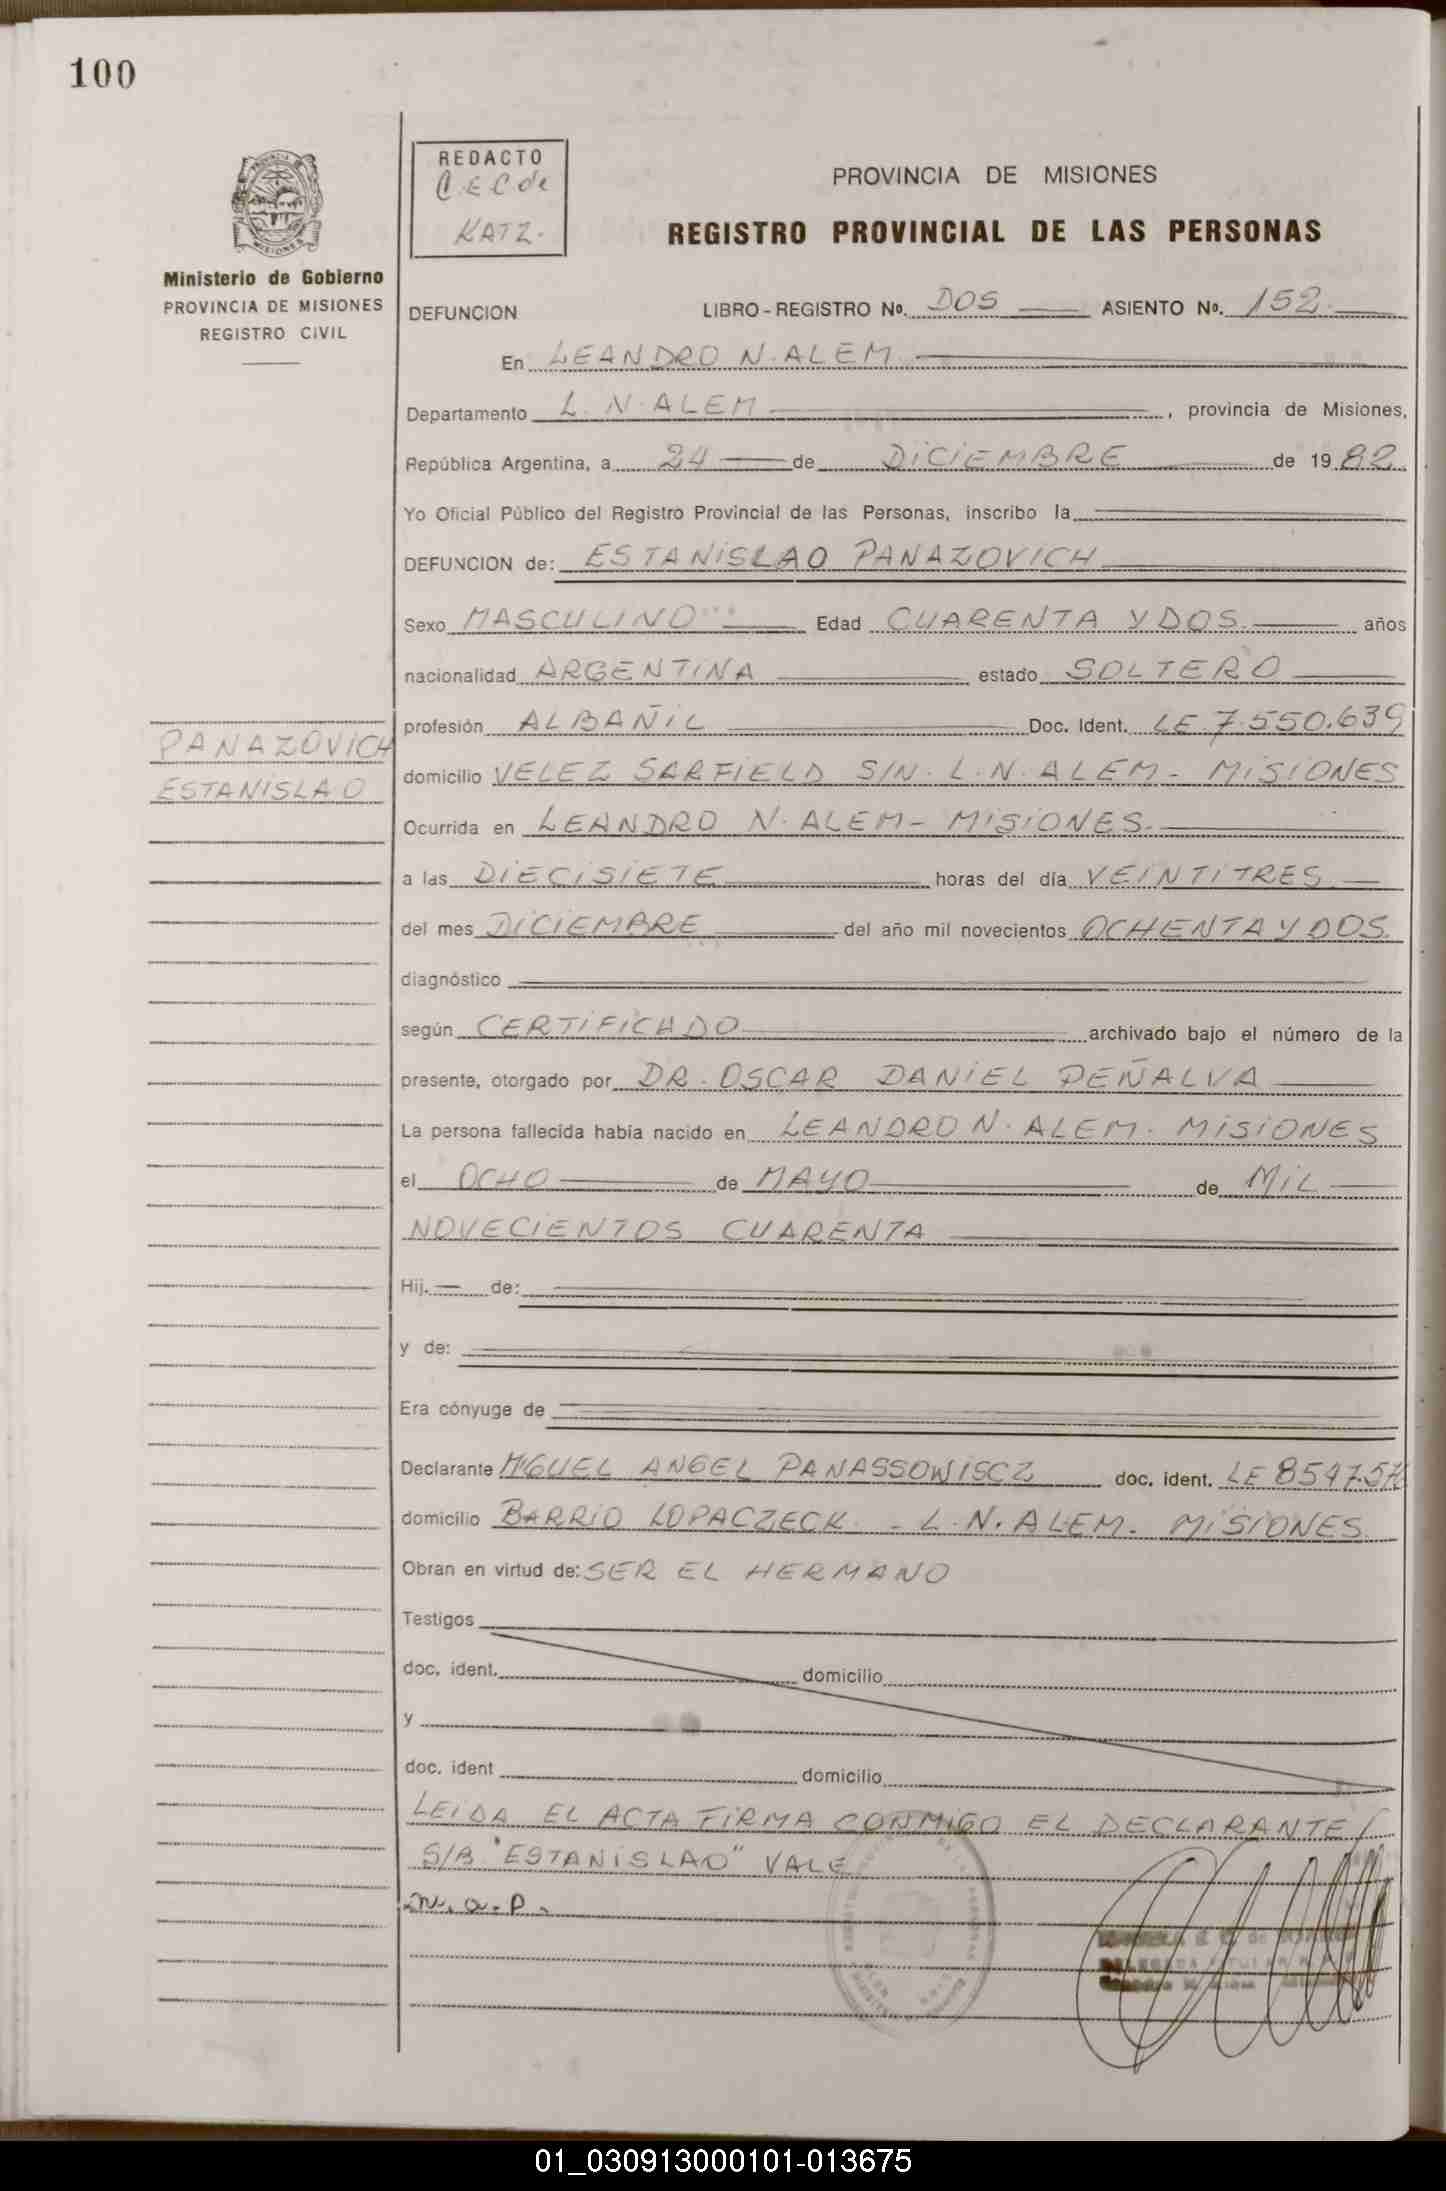 100
REDACTO
C.E.C de
KATZ.
Ministerio de Gobierno
PROVINCIA DE MISIONES
REGISTRO CIVIL
PROVINCIA DE MISIONES
REGISTRO PROVINCIAL DE LAS PERSONAS
DEFUNCION LIBRO-REGISTRO Nº. DOS ASIENTO Nº. 152.
En LEANDRO N. ALEM
Departamento L. N. ALEM, provincia de Misiones,
República Argentina, a 24 de DICIEMBRE de 1982
Yo Oficial Público del Registro Provincial de las Personas, inscribo la
DEFUNCION de: ESTANISLAO PANAZOVICH
Sexo MASCULINO Edad CUARENTA Y DOS. años
nacionalidad ARGENTINA estado SOLTERO
profesión ALBAÑIL Doc. Ident. LE 7.550.639
PANAZOVICH
ESTANISLAO
domicilio VELEZ SARFIELD S/N. L.N. ALEM - MISIONES
Ocurrida en LEANDRO N. ALEM - MISIONES.
a las DIECISIETE horas del día VEINTITRES
del mes DICIEMBRE del año mil novecientos OCHENTA Y DOS.
diagnóstico
según CERTIFICADO archivado bajo el número de la
presente, otorgado por DR. OSCAR DANIEL PEÑALVA
La persona fallecida había nacido en LEANDRO N. ALEM. MISIONES
el OCHO de MAYO de MIL
NOVECIENTOS CUARENTA
Hij. de:
y de:
Era cónyuge de
Declarante MIGUEL ANGEL PANASSOWISCZ doc. ident. LE 8547.576
domicilio BARRIO LOPACZECK. - L.N. ALEM. MISIONES
Obran en virtud de: SER EL HERMANO
Testigos
doc. ident. domicilio
y
doc. ident domicilio
LEIDA EL ACTA FIRMA CONMIGO EL DECLARANTE/
S/B "ESTANISLAO" VALE
m. a. p.
01_030913000101-013675